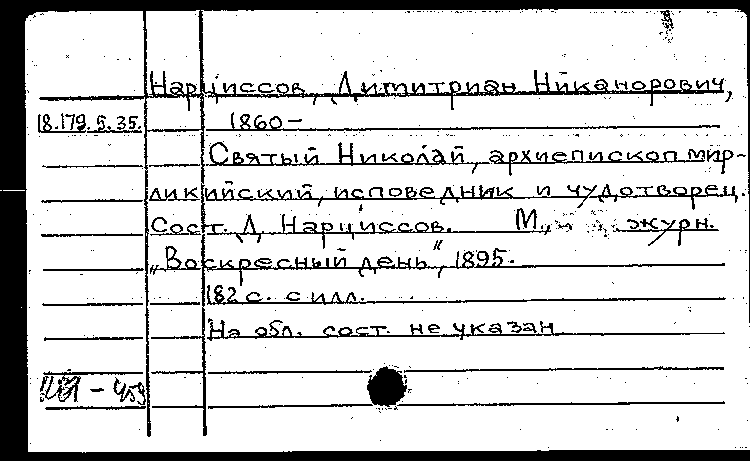 Нарциссов, Димитриан Никанорович,
18.179.5.35. 1860-
Святый Николай, архиепископ мир-
ликийский, исповедник и чудотворец.
Сост. Д. Нарциссов. М., журн.
„Воскресный день", 1895.
182 с. с илл.
На обл. сост. не указан
- 459